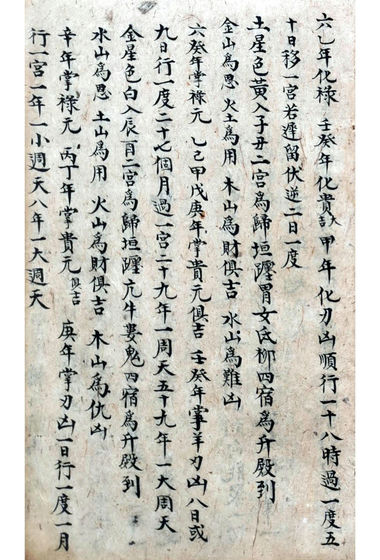 六乙年化祿 壬癸年化貴 甲年化刃凶順行一十八時過一度五
十日移一宮若遲留伏逆二日一度
土星色黃入子丑二宮為歸垣躔胃女氐柳四宿為升殿到
金山為恩 火土為用 木山為財俱吉 水山為難凶
六癸年掌祿元 乙己甲戊庚年掌貴元俱吉 壬癸年掌羊刃凶八日或
九日行一度二十七個月過一宮二十九年一周天五十九年一大周天
金星色白入辰酉二宮為歸垣躔亢牛婁鬼四宿為升殿到
水山為恩 土山為用 火山為財俱吉 木山為仇凶
辛年掌祿元 丙丁年掌貴元俱吉 庚年掌刃凶一日行一度一月
行一宮一年一小週天八年一大週天